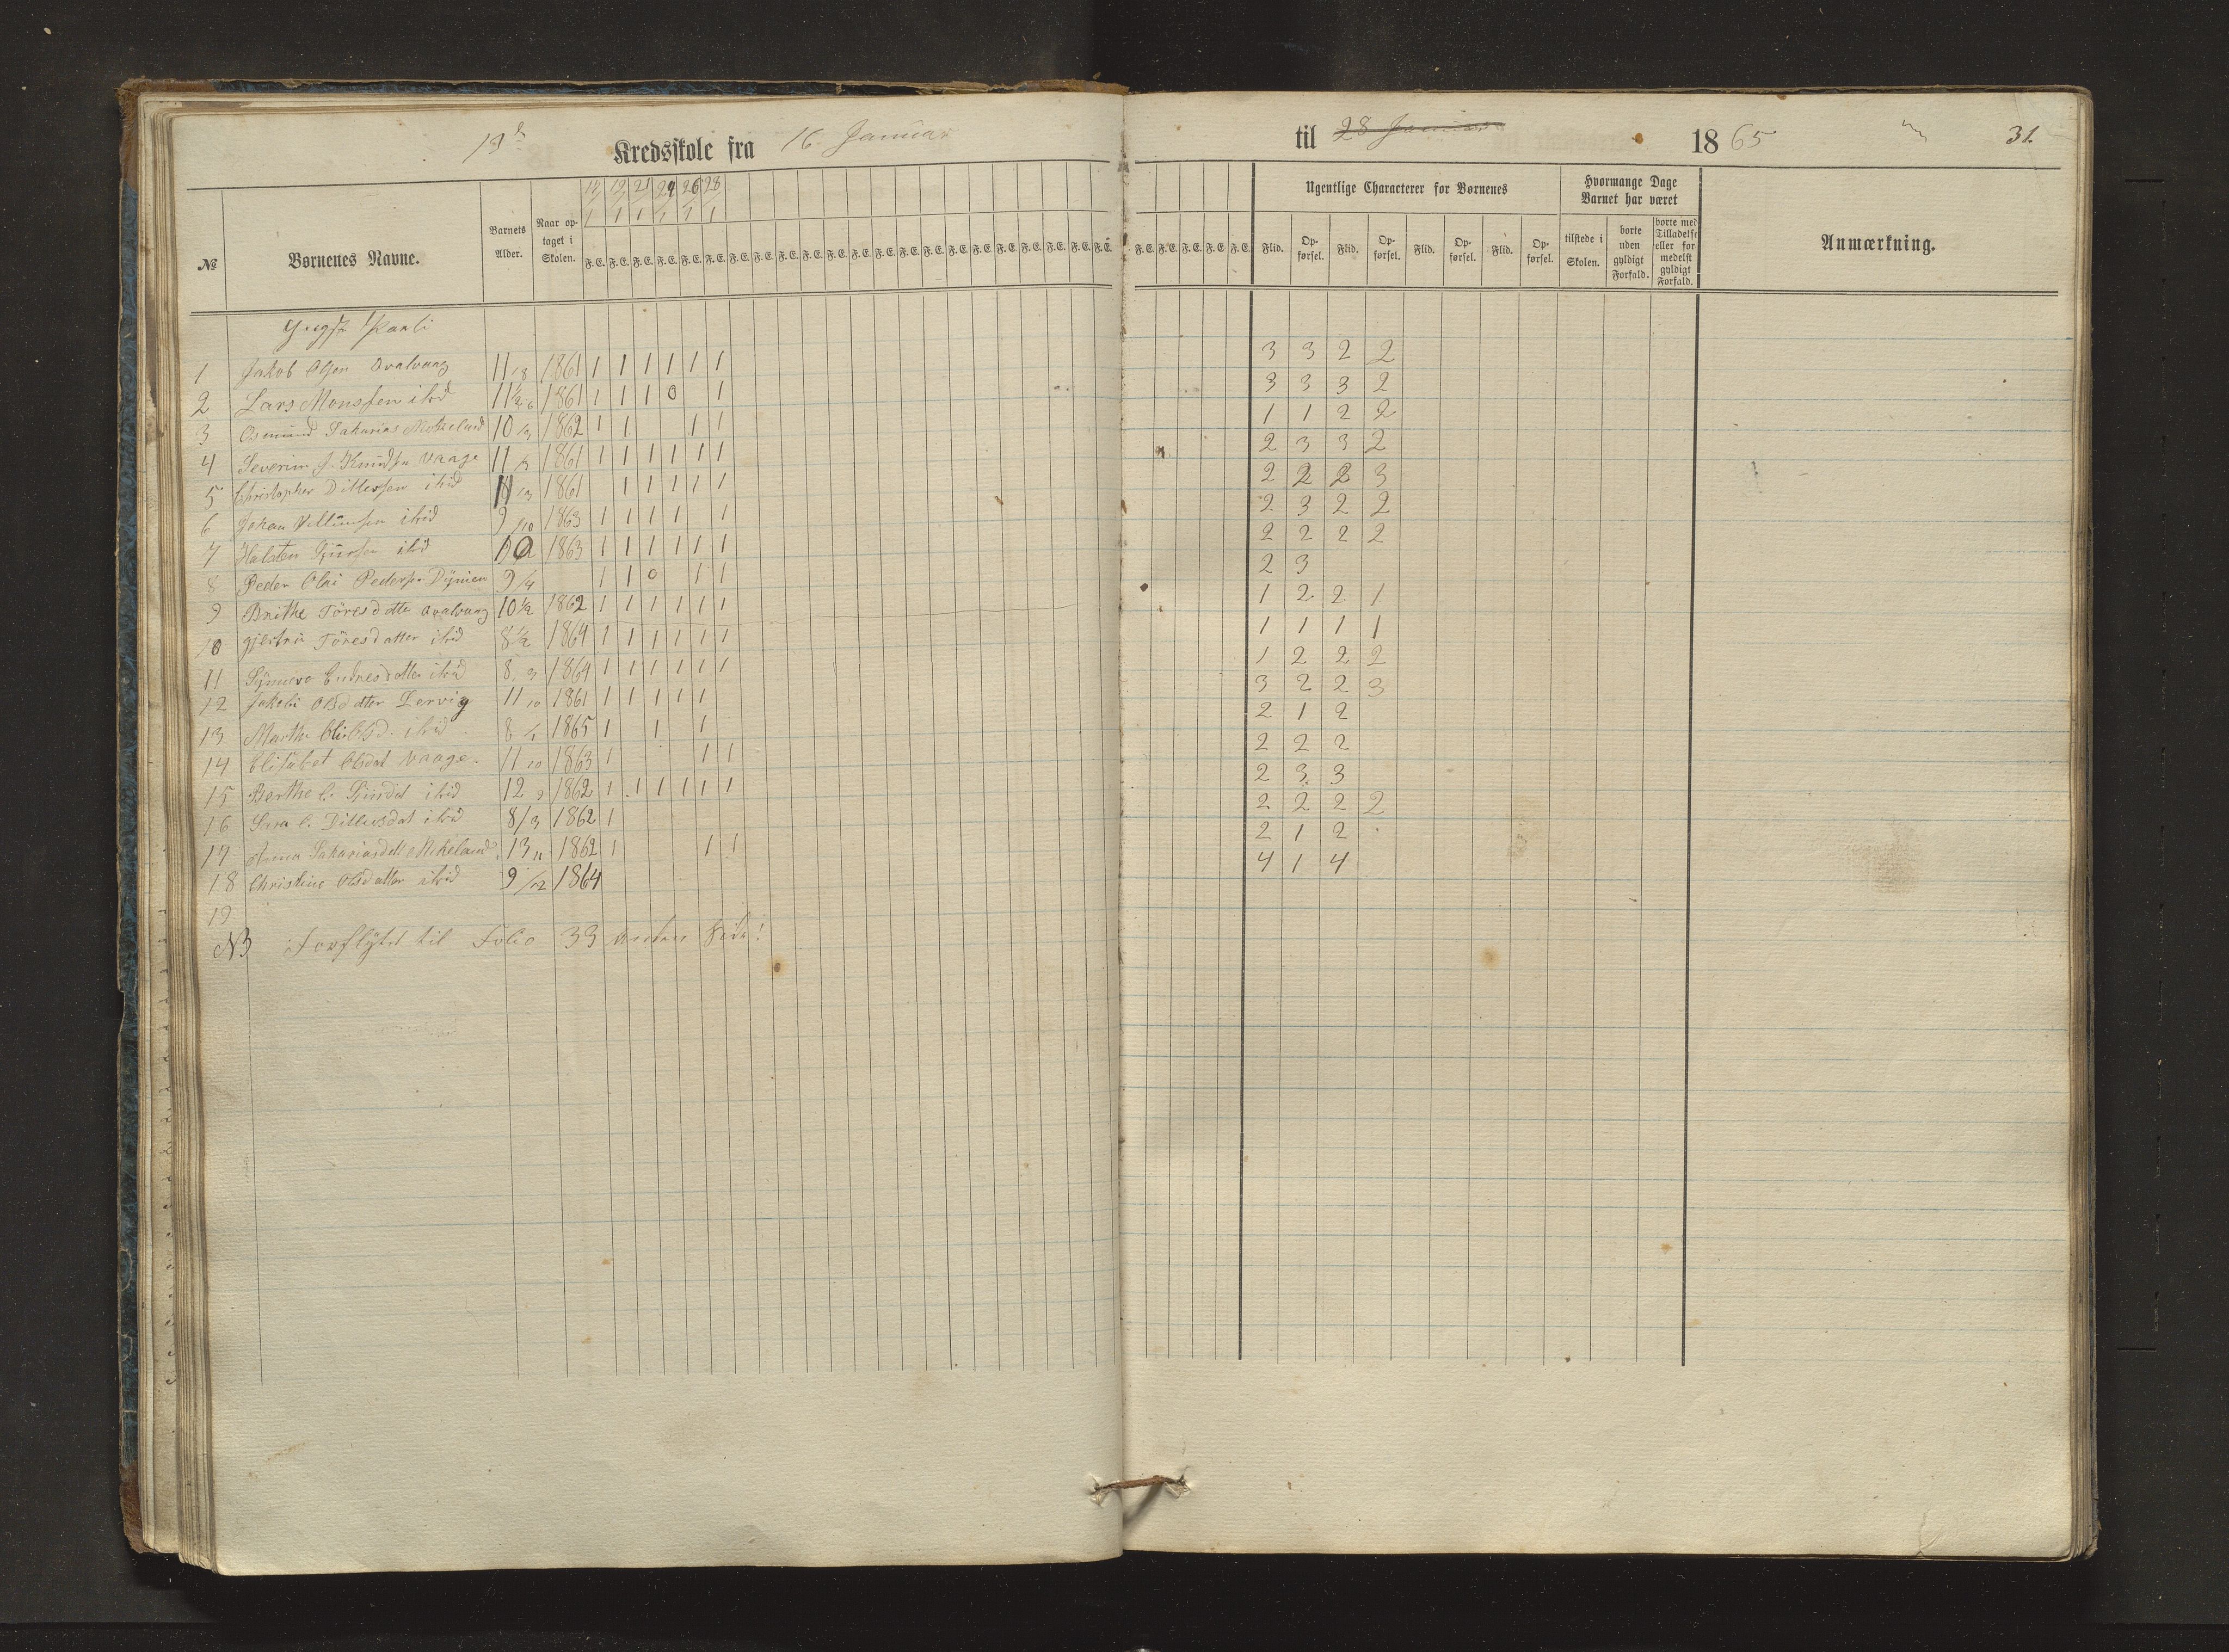 13de Kredsskole fra 16 Januar til 28 Januar 1865 31.
17/1 19/1 21/1 24/1 26/1 28/1
№ Børnenes Navne. Barnets Alder. Naar optaget i Skolen. F.E. F.E. F.E. F.E. F.E. F.E. F.E. F.E. F.E. F.E. F.E. F.E. F.E. F.E. F.E. F.E. F.E. F.E. F.E. F.E. F.E. F.E. F.E. F.E. F.E. F.E. F.E.
Ugentlige Characterer for Børnenes
Flid. Opførsel. Flid. Opførsel. Flid. Opførsel. Flid. Opførsel.
Hvormange Dage Barnet har været
tilstede i Skolen. borte uden gyldigt Forfald. borte med Tilladelse eller formedelst gyldigt Forfald.
Anmærkning.
1 Jakob Olsen 11/8 1861 1 1 1 1 1 1 3 3 2 2
2 Lars Monssen ibid 11½ 6 1861 1 1 1 0 1 3 3 3 2
3 Osmund Sakarias 10 1862 1 1 1 1 1 1 2 2
4 Severin J. Knudsen Vaage 11 1861 1 1 1 1 1 1 2 3 3 2
5 Christopher Ditlefsen ibid 11/3 1861 1 1 1 1 1 2 2 2 3
6 Johan Villumsen ibid 9/10 1863 1 1 1 1 1 2 3 2 2
7 Halsten ibid 10 1863 1 1 1 1 1 1 2 2 2 2
8 Peder Olai Pedersen 9/4 1 1 0 1 1 2 3
9 Brithe Töresdatter 10½ 1862 1 1 1 1 1 1 1 2 2 1
10 Töresdatter ibid 8½ 1864 1 1 1 1 1 1 1 1 1 1
11 ibid 8 3 1864 1 1 1 1 1 1 1 2 2 2
12 Olsdatter Lervig 11 10 1861 1 1 1 1 1 3 2 2 3
13 Marthe Olsd. ibid 8 1865 1 1 1 2 1 2
14 Elisabet Olsdat Vaage. 11 10 1863 1 1 1 2 2 2
15 Berthe ibid 12 9 1862 1 1 1 1 1 1 2 3 3
16 Sara Ditlevsdat ibid 8/3 1862 1 2 2 2 2
17 Anna Sakariasdatt 13 11 1862 1 1 1 2 1 2
18 Christine Olsdatter ibid 9/12 1864 4 1 4
19
NB Forflyttet til Folio 33 anden Side!